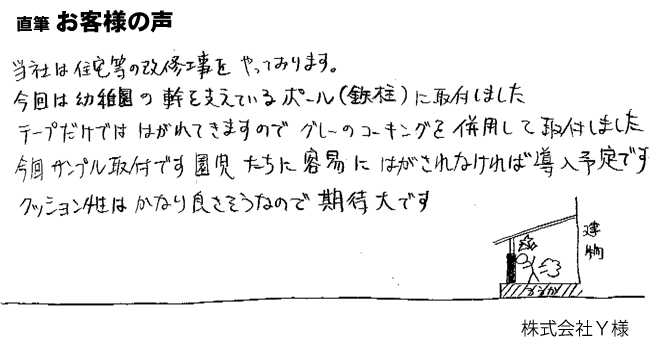 直筆 お客様の声
当社は住宅等の改修工事を やっております。
今回は幼稚園の軒を支えているポール(鉄柱)に取付しました
テープだけでは はがれてきますので グレーのコーキングを 併用して取付しました
今回サンプル取付です 園児たちに容易に はがされなければ導入予定です
クッション性は かなり良さそうなので 期待大です
建物
株式会社Y様